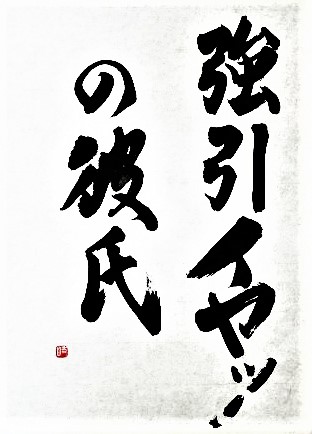 強引イヤッ
の彼氏